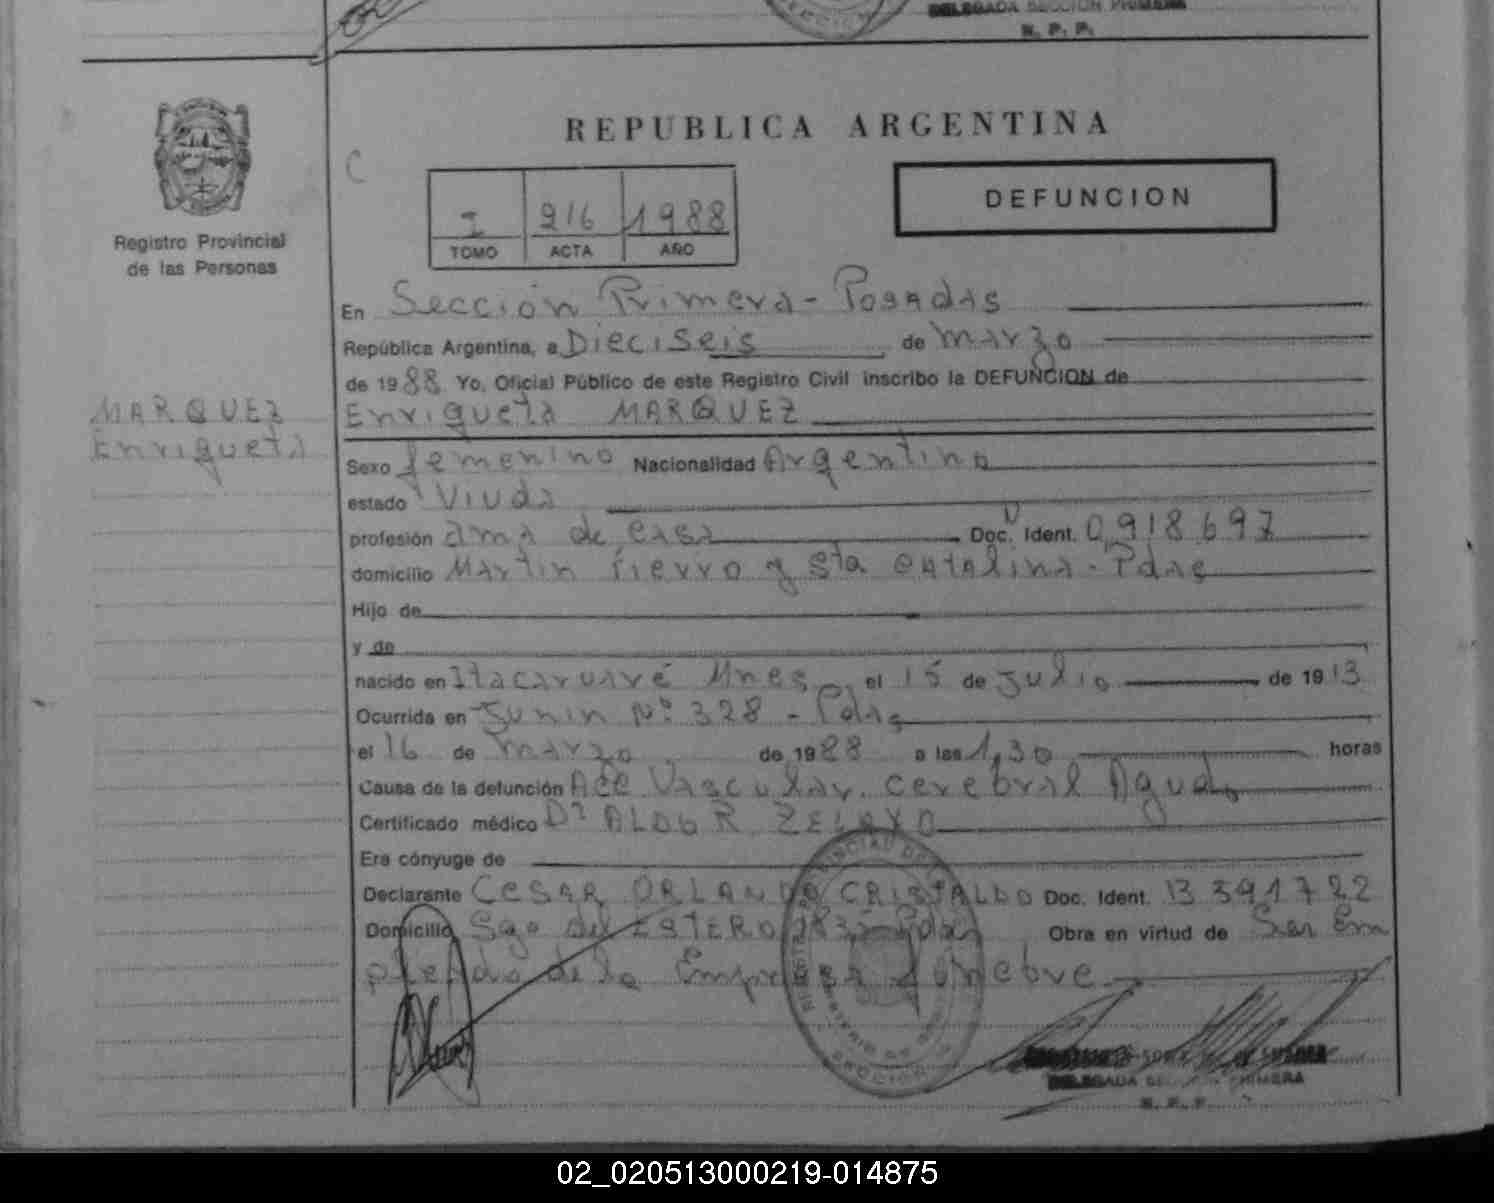 DELEGADA SECCION PRIMERA
R. P. P.
REPUBLICA ARGENTINA
C
I 216 1988
TOMO ACTA AÑO
DEFUNCION
Registro Provincial
de las Personas
En Sección Primera - Posadas
República Argentina, a Dieciseis de marzo
de 1988 Yo, Oficial Público de este Registro Civil inscribo la DEFUNCION de
MARQUEZ
Enriqueta
Enriqueta MARQUEZ
Sexo femenino Nacionalidad Argentina
estado Viuda
profesión ama de casa Doc. Ident. 0.918.697
domicilio Martin Fierro y Sta Catalina - Pdas
Hijo de
y de
nacido en Itacaruaré Mnes el 15 de Julio de 1913
Ocurrida en Junin Nº 328 - Pdas
el 16 de marzo de 1988 a las 1,30 horas
Causa de la defunción Acc Vascular cerebral Agudo
Certificado médico Dr ALDO R ZELAYA
Era cónyuge de
Declarante CESAR ORLANDO CRISTALDO Doc. Ident. 13 391 722
Domicilio Sgo del ESTERO Pdas Obra en virtud de Ser Em
pleado de la Empresa funebre
DELEGADA SECCION PRIMERA
R. P. P.
02_020513000219-014875